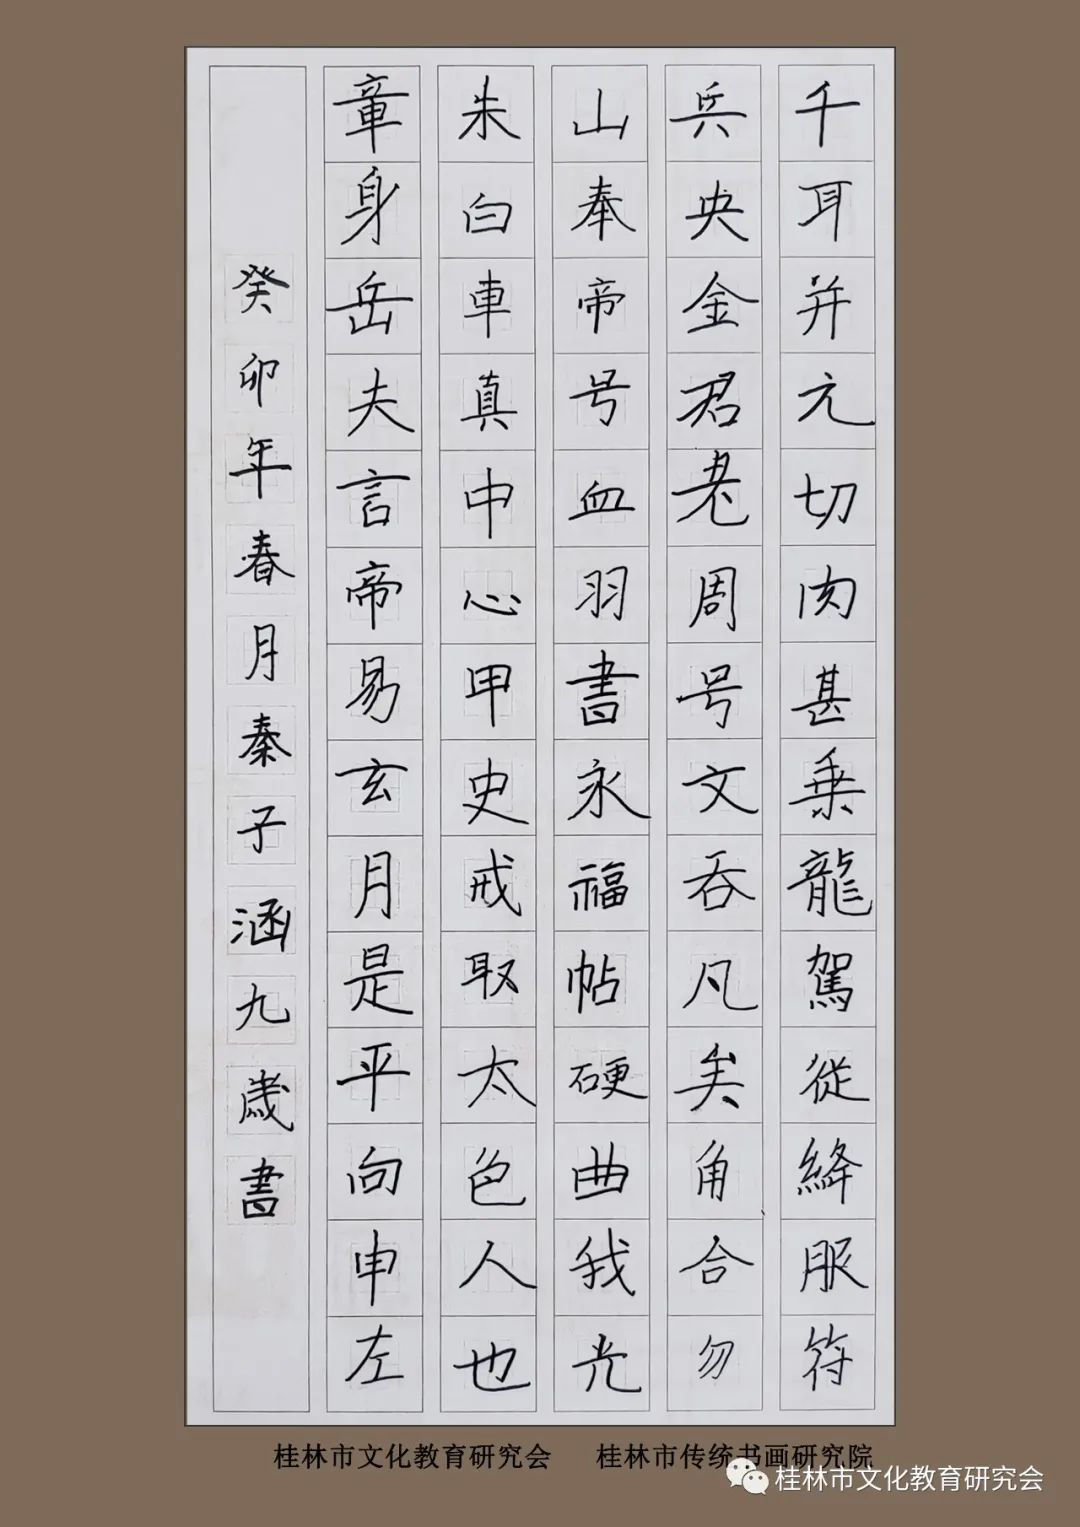 千耳并元切肉甚乗龍駕從絳服符
兵央金君老周号文吞凡矣角合勿
山奉帝号血羽書永福帖硬曲我光
朱白車真中心甲史戒取太色人也
章身岳夫言帝易玄月是平向申左
癸卯年春月秦子涵九歲書
桂林市文化教育研究会 桂林市传统书画研究院
桂林市文化教育研究会